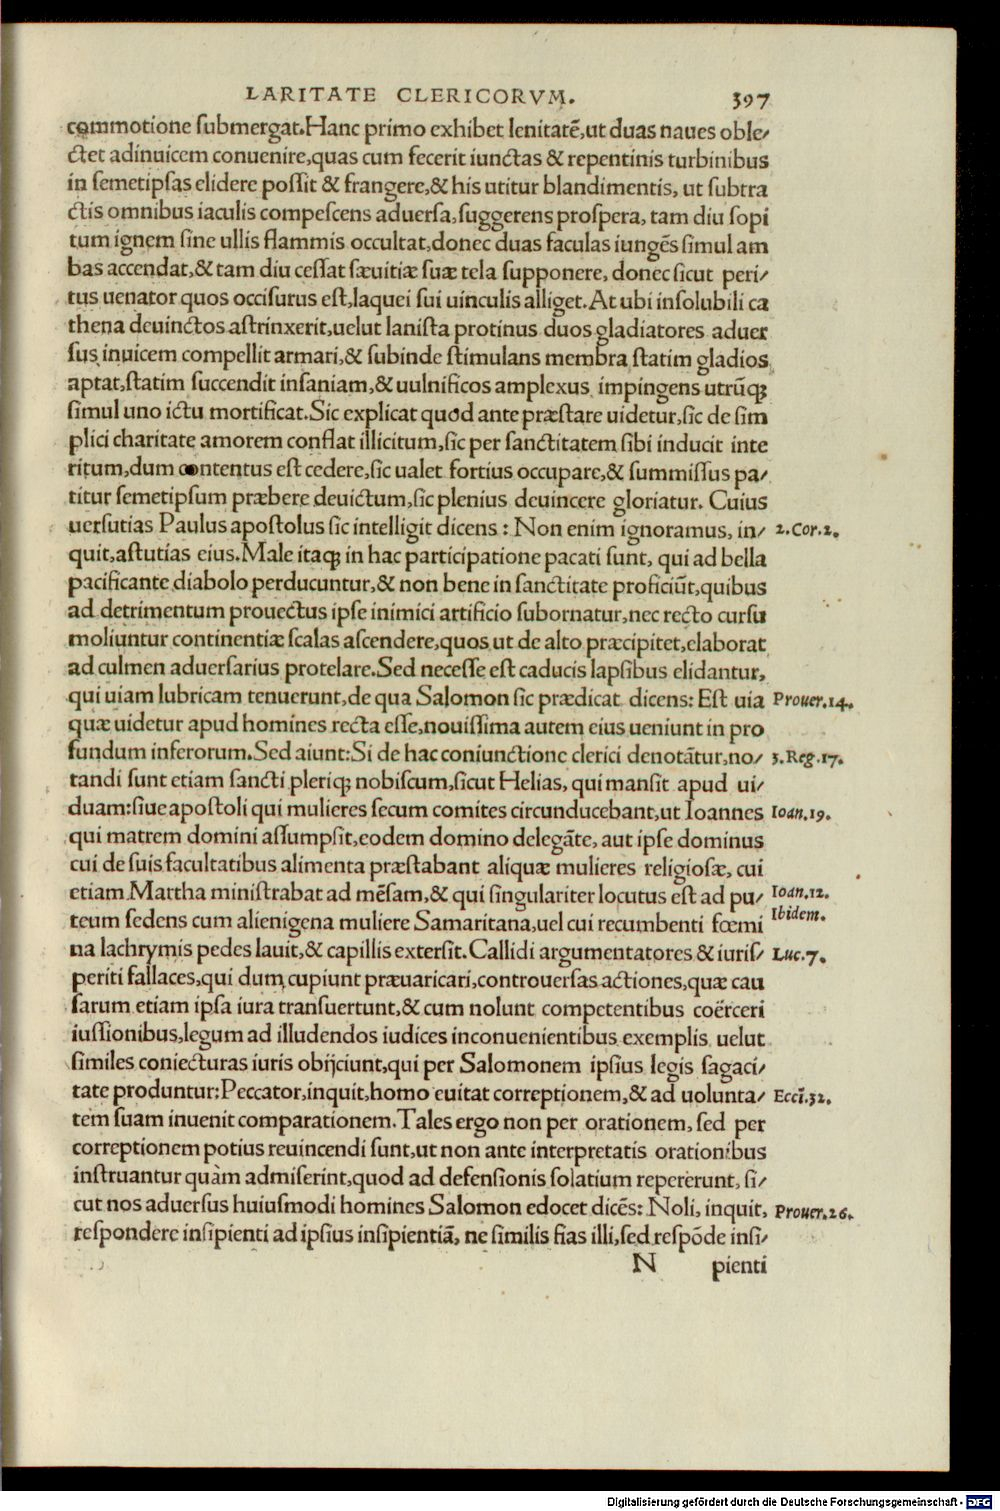 LARITATE CLERICORVM. 397
commotione submergat.Hanc primo exhibet lenitatẽ,ut duas naues oble/
ctet adinuicem conuenire,quas cum fecerit iunctas & repentinis turbinibus
in semetipsas elidere possit & frangere,& his utitur blandimentis, ut subtra
ctis omnibus iaculis compescens aduersa,suggerens prospera, tam diu sopi
tum ignem sine ullis flammis occultat,donec duas faculas iungẽs simul am
bas accendat,& tam diu cessat sæuitiæ suæ tela supponere, donec sicut peri/
tus uenator quos occisurus est,laquei sui uinculis alliget.At ubi insolubili ca
thena deuinctos astrinxerit,uelut lanista protinus duos gladiatores aduer
sus inuicem compellit armari,& subinde stimulans membra statim gladios
aptat,statim succendit insaniam,& uulnificos amplexus impingens utrũq;
simul uno ictu mortificat.Sic explicat quod ante præstare uidetur,sic de sim
plici charitate amorem conflat illicitum,sic per sanctitatem sibi inducit inte
ritum,dum contentus est cedere,sic ualet fortius occupare,& summissus pa/
titur semetipsum præbere deuictum,sic plenius deuincere gloriatur. Cuius
uersutias Paulus apostolus sic intelligit dicens : Non enim ignoramus, in/ 2.Cor.2.
quit,astutias eius.Male itaq; in hac participatione pacati sunt, qui ad bella
pacificante diabolo perducuntur,& non bene in sanctitate proficiũt,quibus
ad detrimentum prouectus ipse inimici artificio subornatur,nec recto cursu
moliuntur continentiæ scalas ascendere,quos ut de alto præcipitet,elaborat
ad culmen aduersarius protelare.Sed necesse est caducis lapsibus elidantur,
qui uiam lubricam tenuerunt,de qua Salomon sic prædicat dicens: Est uia Prouer.14.
quæ uidetur apud homines recta esse,nouissima autem eius ueniunt in pro
fundum inferorum.Sed aiunt:Si de hac coniunctione clerici denotãtur,no/ 3.Reg.17.
tandi sunt etiam sancti pleriq; nobiscum,sicut Helias, qui mansit apud ui/
duam:siue apostoli qui mulieres secum comites circunducebant,ut Ioannes Ioan.19.
qui matrem domini assumpsit,eodem domino delegãte, aut ipse dominus
cui de suis facultatibus alimenta præstabant aliquæ mulieres religiosæ, cui
etiam Martha ministrabat ad mẽsam,& qui singulariter locutus est ad pu/ Ioan.12.
teum sedens cum alienigena muliere Samaritana,uel cui recumbenti fœmi Ibidem.
na lachrymis pedes lauit,& capillis extersit.Callidi argumentatores & iuris/ Luc.7.
periti fallaces,qui dum cupiunt præuaricari,controuersas actiones,quæ cau
sarum etiam ipsa iura transuertunt,& cum nolunt competentibus coërceri
iussionibus,legum ad illudendos iudices inconuenientibus exemplis uelut
similes coniecturas iuris obijciunt,qui per Salomonem ipsius legis sagaci/
tate produntur:Peccator,inquit,homo euitat correptionem,& ad uolunta/ Eccĩ.32.
tem suam inuenit comparationem.Tales ergo non per orationem, sed per
correptionem potius reuincendi sunt,ut non ante interpretatis orationibus
instruantur quàm admiserint,quod ad defensionis solatium repererunt, si/
cut nos aduersus huiusmodi homines Salomon edocet dicẽs: Noli, inquit, Prouer.26.
respondere insipienti ad ipsius insipientiã, ne similis fias illi,sed respõde insi/
N pienti
Digitalisierung gefördert durch die Deutsche Forschungsgemeinschaft - DFG